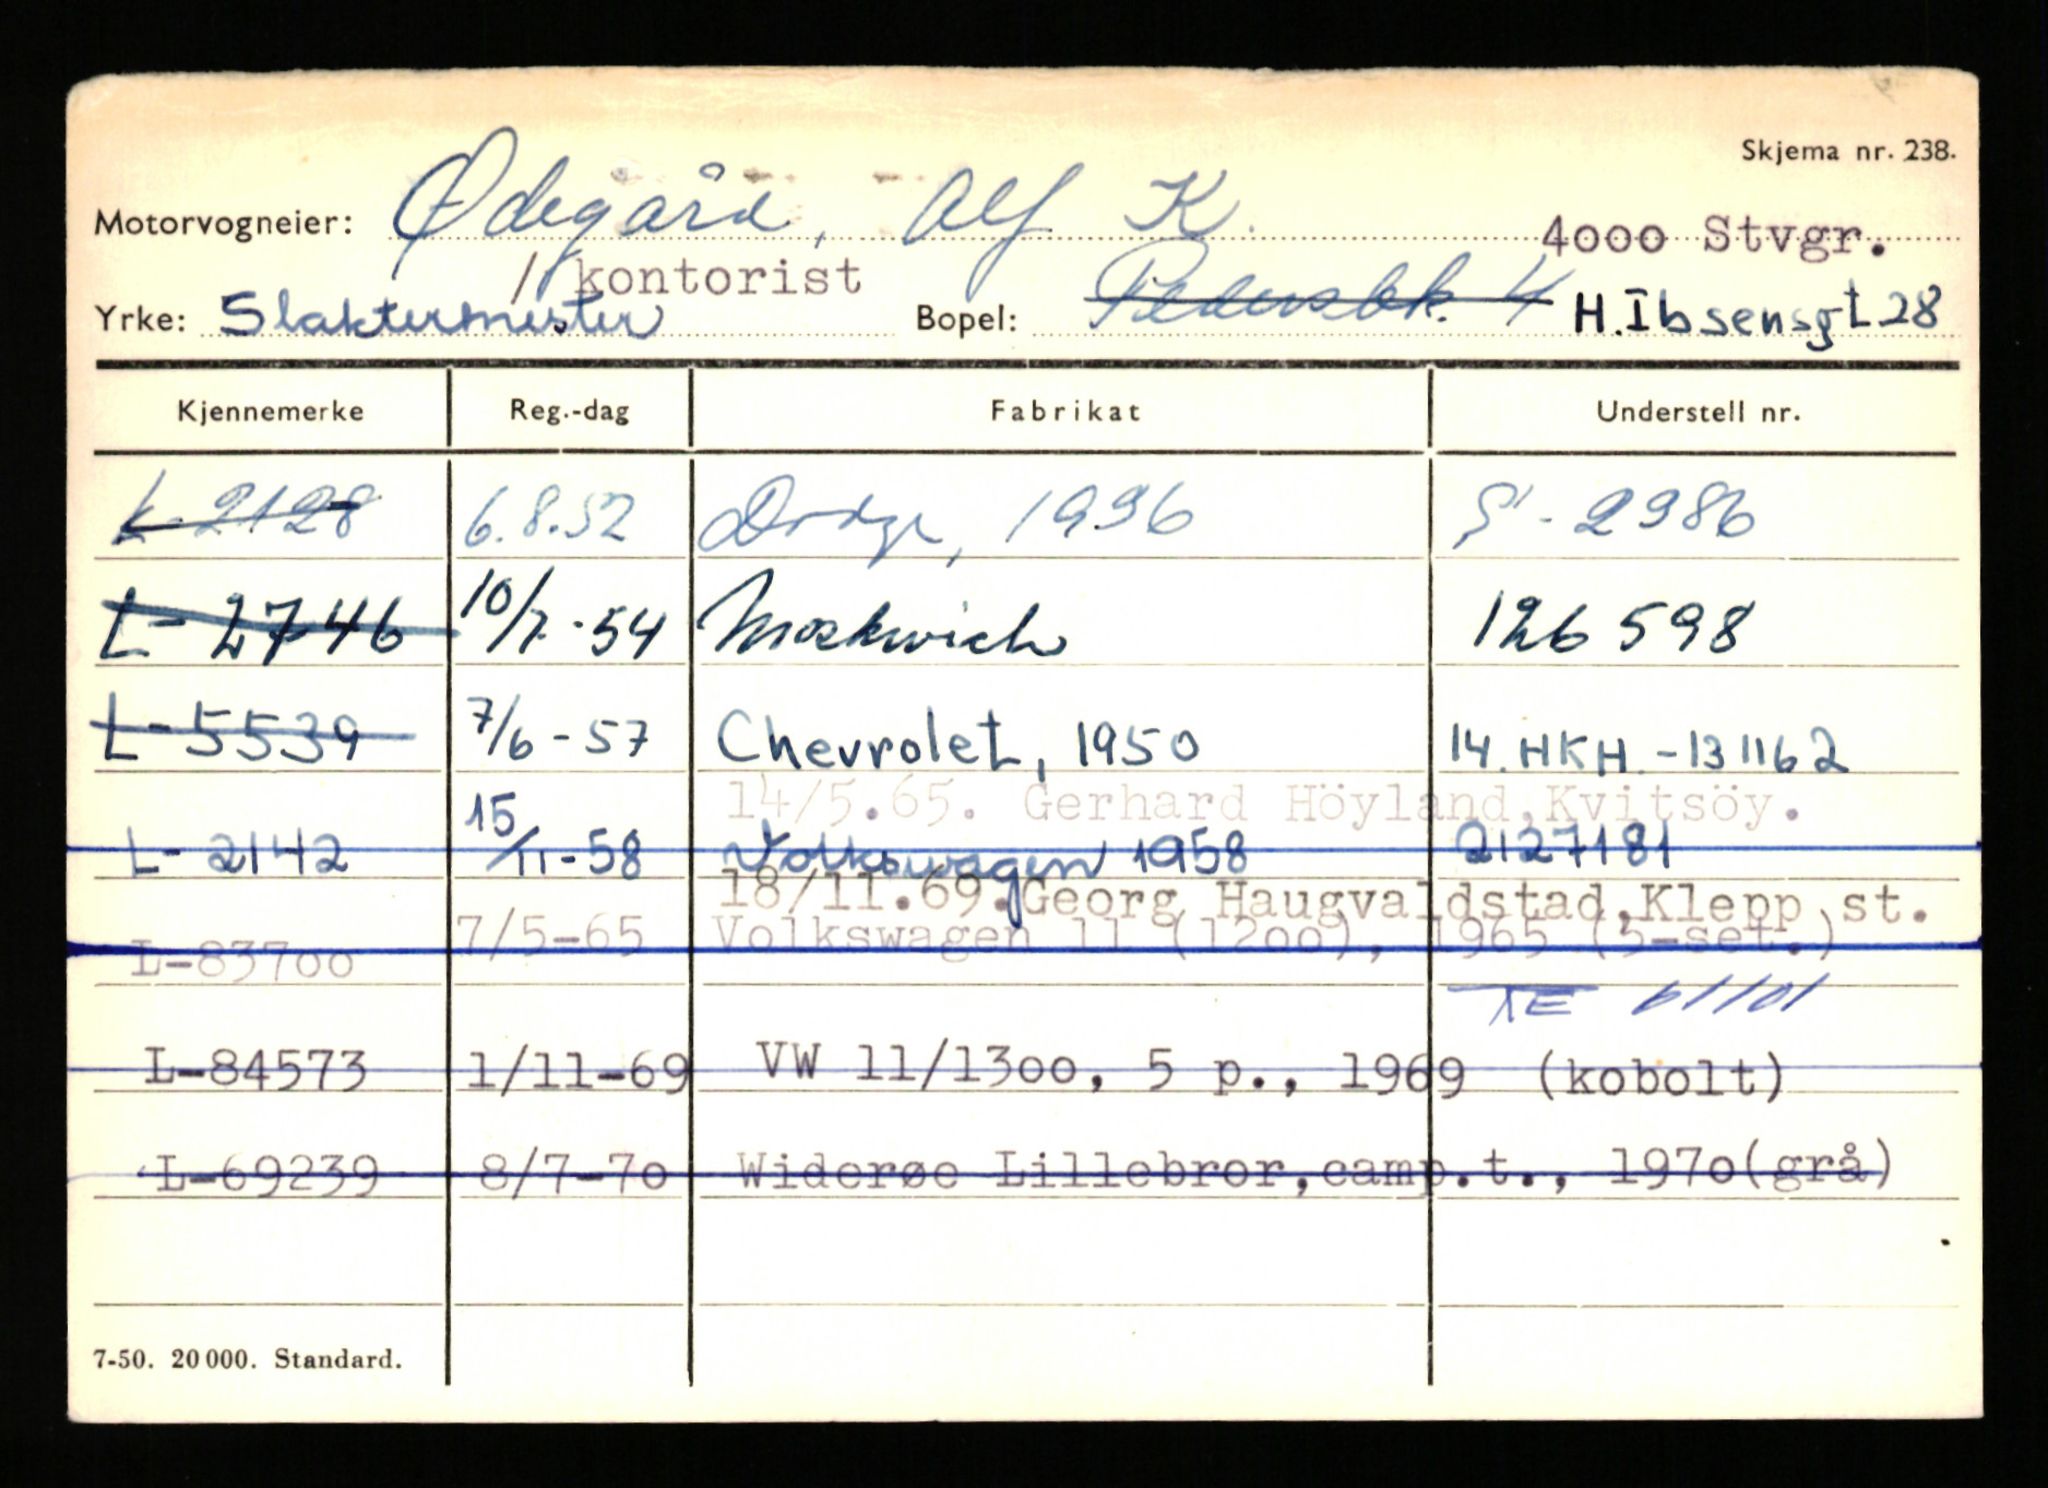 Skjema nr. 238.
Motorvogneier: Ødegård, Alf K. 4000 Stvgr.
/ kontorist
Yrke: Slaktermester Bopel: Pedersbk. 4 H. Ibsensgt 28
Kjennemerke Reg.-dag Fabrikat Understell nr.
L-2128 6.8.52 Dodge, 1936 S-2986
L-2746 10/7-54 Moskwich 126598
L-5539 7/6-57 Chevrolet, 1950 14.HKH.-131162
14/5.65. Gerhard Höyland,Kvitsöy.
L-2142 15/11-58 Volkswagen 1958 2127181
18/11.69.Georg Haugvaldstad,Klepp st.
L-83700 7/5-65 Volkswagen 11 (1200), 1965 (5-set.)
L-84573 1/11-69 VW 11/1300, 5 p., 1969 (kobolt)
L-69239 8/7-70 Widerøe Lillebror,camp.t., 1970(grå)
7-50. 20 000. Standard.